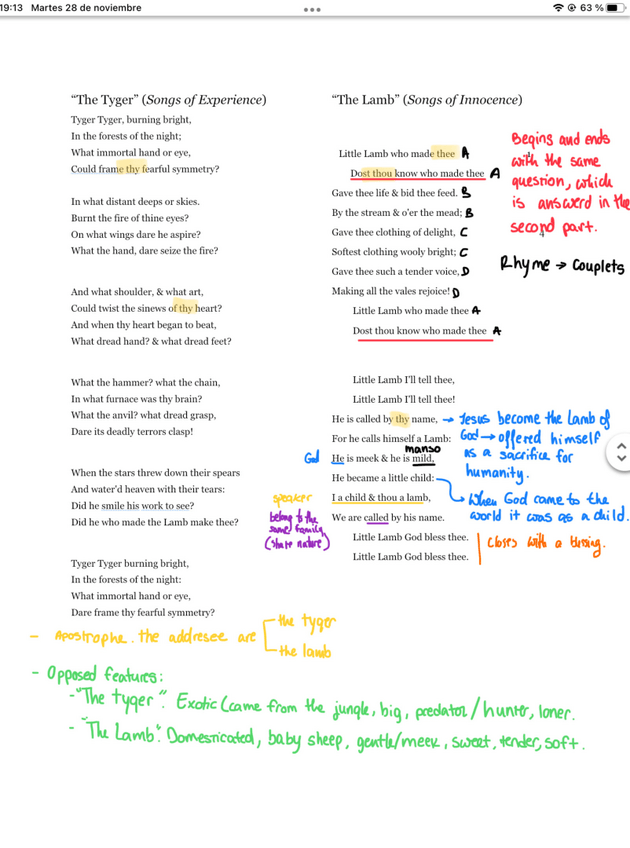 19:13 Martes 28 de noviembre
63 %
"The Tyger" (Songs of Experience)
Tyger Tyger, burning bright,
In the forests of the night;
What immortal hand or eye,
Could frame thy fearful symmetry?
In what distant deeps or skies.
Burnt the fire of thine eyes?
On what wings dare he aspire?
What the hand, dare seize the fire?
And what shoulder, & what art,
Could twist the sinews of thy heart?
And when thy heart began to beat,
What dread hand? & what dread feet?
What the hammer? what the chain,
In what furnace was thy brain?
What the anvil? what dread grasp,
Dare its deadly terrors clasp!
When the stars threw down their spears
And water'd heaven with their tears:
Did he smile his work to see?
Did he who made the Lamb make thee?
Tyger Tyger burning bright,
In the forests of the night:
What immortal hand or eye,
Dare frame thy fearful symmetry?
"The Lamb" (Songs of Innocence)
Little Lamb who made thee A
Dost thou know who made thee A
Gave thee life & bid thee feed. B
By the stream & o'er the mead; B
Gave thee clothing of delight, C
Softest clothing wooly bright; C
Gave thee such a tender voice, D
Making all the vales rejoice! D
Little Lamb who made thee A
Dost thou know who made thee A
Little Lamb I'll tell thee,
Little Lamb I'll tell thee!
He is called by thy name,
For he calls himself a Lamb:
manso
God He is meek & he is mild,
He became a little child:
I a child & thou a lamb,
We are called by his name.
Little Lamb God bless thee.
Little Lamb God bless thee.
Begins and ends
with the same
question, which
is answerd in the
second part.
Rhyme → couplets
→ Jesus become the Lamb of
God → offered himself
as a sacrifice for
humanity.
When God came to the
world it was as a child.
speaker
belong to the
same family
(share nature)
closes with a blessing.
- Apostrophe. the addresee are
the tyger
the lamb
- Opposed features:
- "The tyger": Exotic (came from the jungle, big, predator/hunter, loner.
- "The Lamb": Domesticated, baby sheep, gentle/meek, sweet, tender, soft.